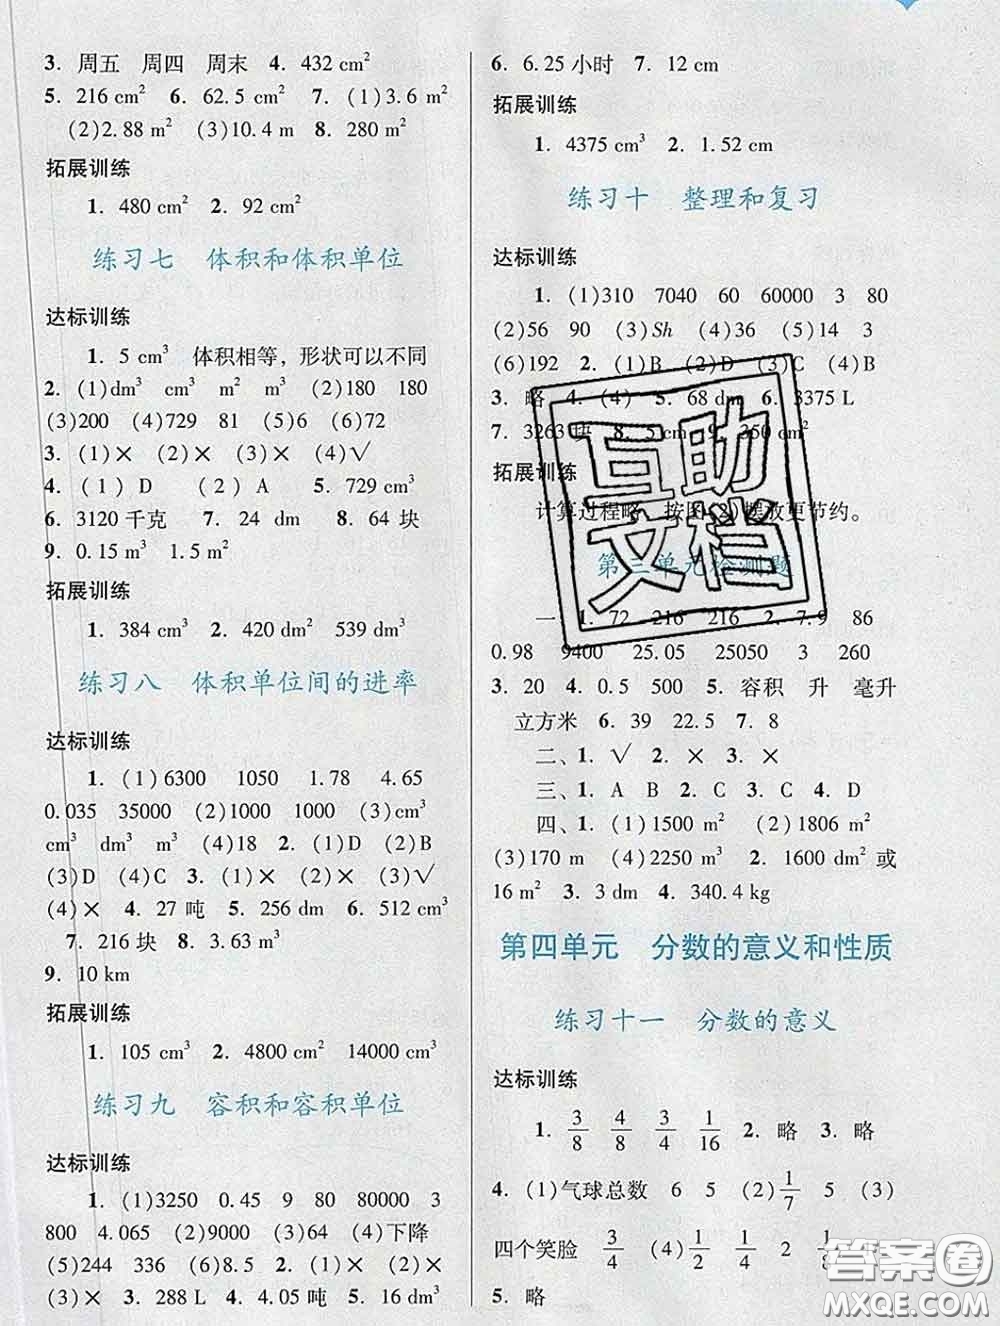 3. 周五 周四 周末 4. 432 cm²
5. 216 cm² 6. 62.5 cm² 7. (1)3.6 m²
(2)2.88 m² (3)10.4 m 8. 280 m²
拓展训练
1. 480 cm² 2. 92 cm²
练习七 体积和体积单位
达标训练
1. 5 cm³ 体积相等，形状可以不同
2. (1)dm³ cm³ m² m³ (2)180 180
(3)200 (4)729 81 (5)6 (6)72
3. (1)× (2)× (3)× (4)√
4. (1) D (2) A 5. 729 cm³
6. 3120 千克 7. 24 dm 8. 64 块
9. 0.15 m³ 1.5 m²
拓展训练
1. 384 cm³ 2. 420 dm² 539 dm³
练习八 体积单位间的进率
达标训练
1. (1)6300 1050 1.78 4.65
0.035 35000 (2)1000 1000 (3)cm³
cm³ dm³ m³ (4)18 2. (1)D (2)B
(3)D (4)C 3. (1)× (2)× (3)√
(4)× 4. 27 吨 5. 256 dm 6. 512 cm³
7. 216 块 8. 3.63 m³
9. 10 km
拓展训练
1. 105 cm³ 2. 4800 cm² 14000 cm³
练习九 容积和容积单位
达标训练
1. (1)3250 0.45 9 80 80000 3
800 4.065 (2)9000 (3)64 (4)下降
(5)244 336 (6)36 2. (1)× (2)×
(3)× 3. 288 L 4. 4.05 吨 5. 16 dm²
6. 6.25 小时 7. 12 cm
拓展训练
1. 4375 cm³ 2. 1.52 cm
练习十 整理和复习
达标训练
1. (1)310 7040 60 60000 3 80
(2)56 90 (3)Sh (4)36 (5)14 3
(6)192 2. (1)B (2)D (3)C (4)B
3. 略 4. (4) 5. 68 dm 6. 3375 L
7. 3263 块 8. 5 cm 9. 350 cm²
拓展训练
计算过程略 按图(2)摆放更节约。
第三单元检测题
一、1. 72 216 216 2. 7.9 86
0.98 9400 25.05 25050 3 260
3. 20 4. 0.5 500 5. 容积 升 毫升
立方米 6. 39 22.5 7. 8
二、1. √ 2. × 3. ×
三、1. A B 2. C 3. C 4. D
四、1. (1)1500 m² (2)1806 m²
(3)170 m (4)2250 m³ 2. 1600 dm² 或
16 m² 3. 3 dm 4. 340.4 kg
第四单元 分数的意义和性质
练习十一 分数的意义
达标训练
1. 3/8 4/8 3/4 1/16 2. 略 3. 略
4. (1)气球总数 6 5 (2) 1/7 5 (3)
四个笑脸 3/4 (4) 1/2 1/4 2 1/8
5. 略
互助
文档
答案圈
MXQE.COM